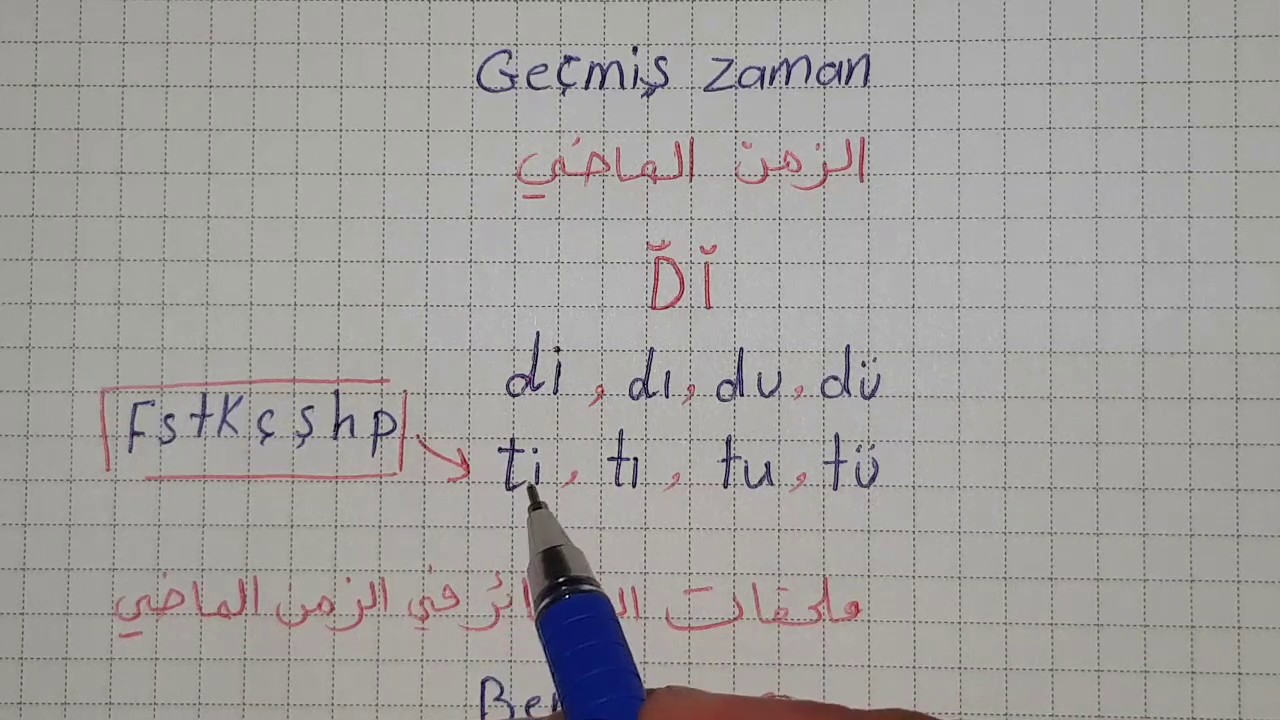 Geçmiş zaman
الزمن الماضي
Dİ
di , dı , du , dü
Fstkçşhp
ti , tı , tu , tü
ملحقات في الزمن الماضي